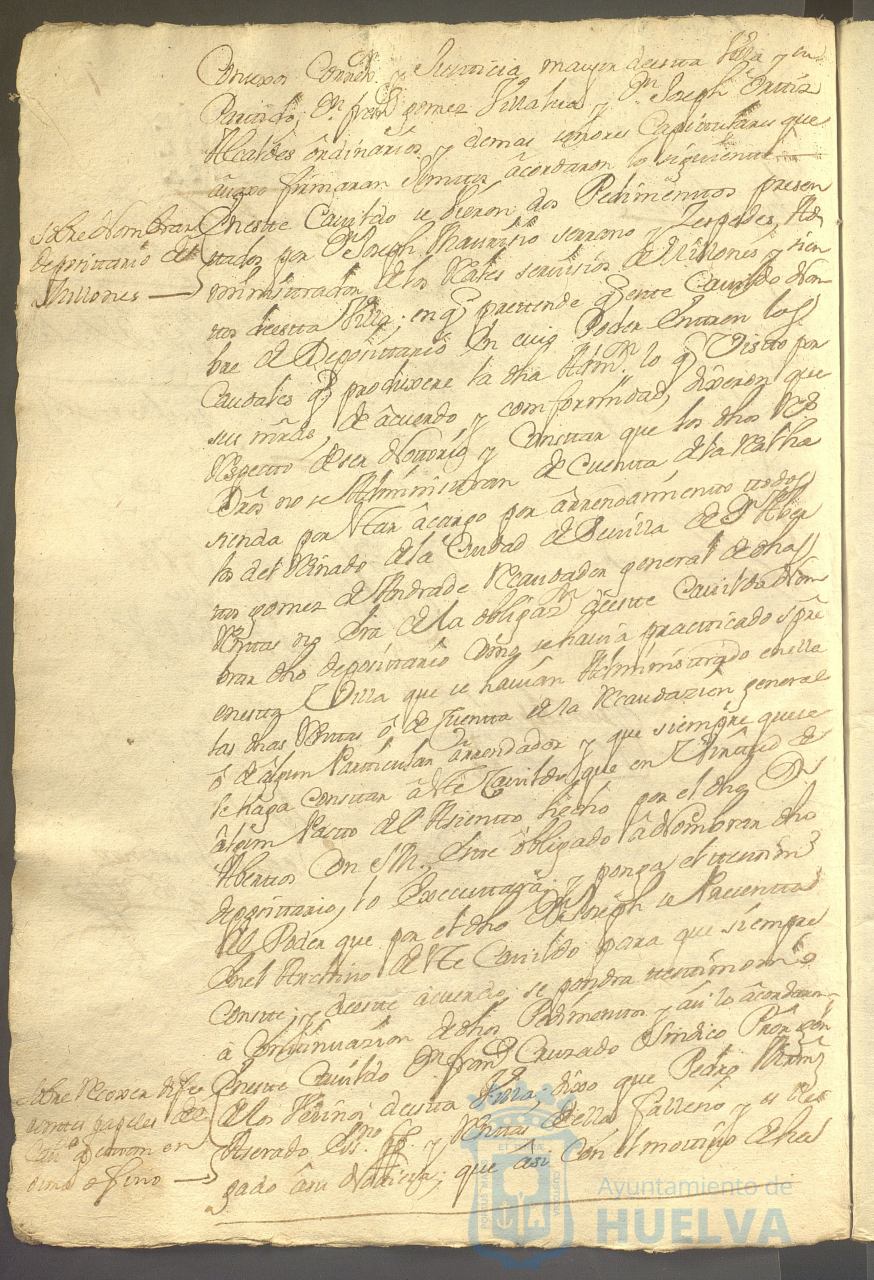 Consexos Correxr. y Justicia mayor desta Villa y su
Partido, Dn. Gomez y Dn. Joseph Ortiz
Alcaldes ordinarios y demas señores Capitulares que
avaxo firmaran Juntos acordaron lo siguiente
sobre Nombrar
depositario de
Millones
Eneste Cavildo se vieron dos Pedimentos presen
tados por Dn. Joseph Maurisio serrano y Zespedes, Ad
ministrador de los Rales servisios de Millones y sien
tos desta Villa; en q pretende q este Cavildo Nom
bre de Depositario En cuio Poder Entren los
Caudales q produxere la dha Admn. lo q Visto por
sus mrds, de acuerdo y comformidad, dixeron que
Respecto de ser Notorio y Constar que los dhos Rs
Dros no se Administran de Cuenta de la Rl ha
sienda por estar a cargo por arrendamiento todos
los del Reinado de la Ciudad de Sevilla de Dn. Alber
tos gomez de Andrade Recaudador general de dhas
Rentas no Era de la obligazn deeste Cavildo Nom
brar dho depositario como se havia practicado spre
enesta Villa que se havian Administrado en ella
las dhas Rentas ô de Cuenta de la Recaudazion general
ô de algun Particular arrendador y que siempre que se
le haga Constar a este Cavildo, que en Virtud de
algun Pacto del Asiento hecho por el dho Dn.
Albertos Con S.M. Este obligado a Nombrar dho
depositario, lo Executara y ponga el testimo
del Poder que por el dho Dn. Joseph se Presenta
En el Archivo de este Cavildo para que siempre
Conste, y deeste acuerdo se pondra testimonio
a Continuazion de dhos Pedimentos y asi lo acordaron
sobre Recoxer dife
rentes papeles del
que estan en
Eneste Cavildo Dn. franco Cruzado Sindico Pror xen
de los Vesinos desta Villa; dixo que Pedro
Aserado Esno. y Rentas della fallesio y a lle
gado a su Notisia; que asi Con el motivo de ha
Ayuntamiento de
HUELVA